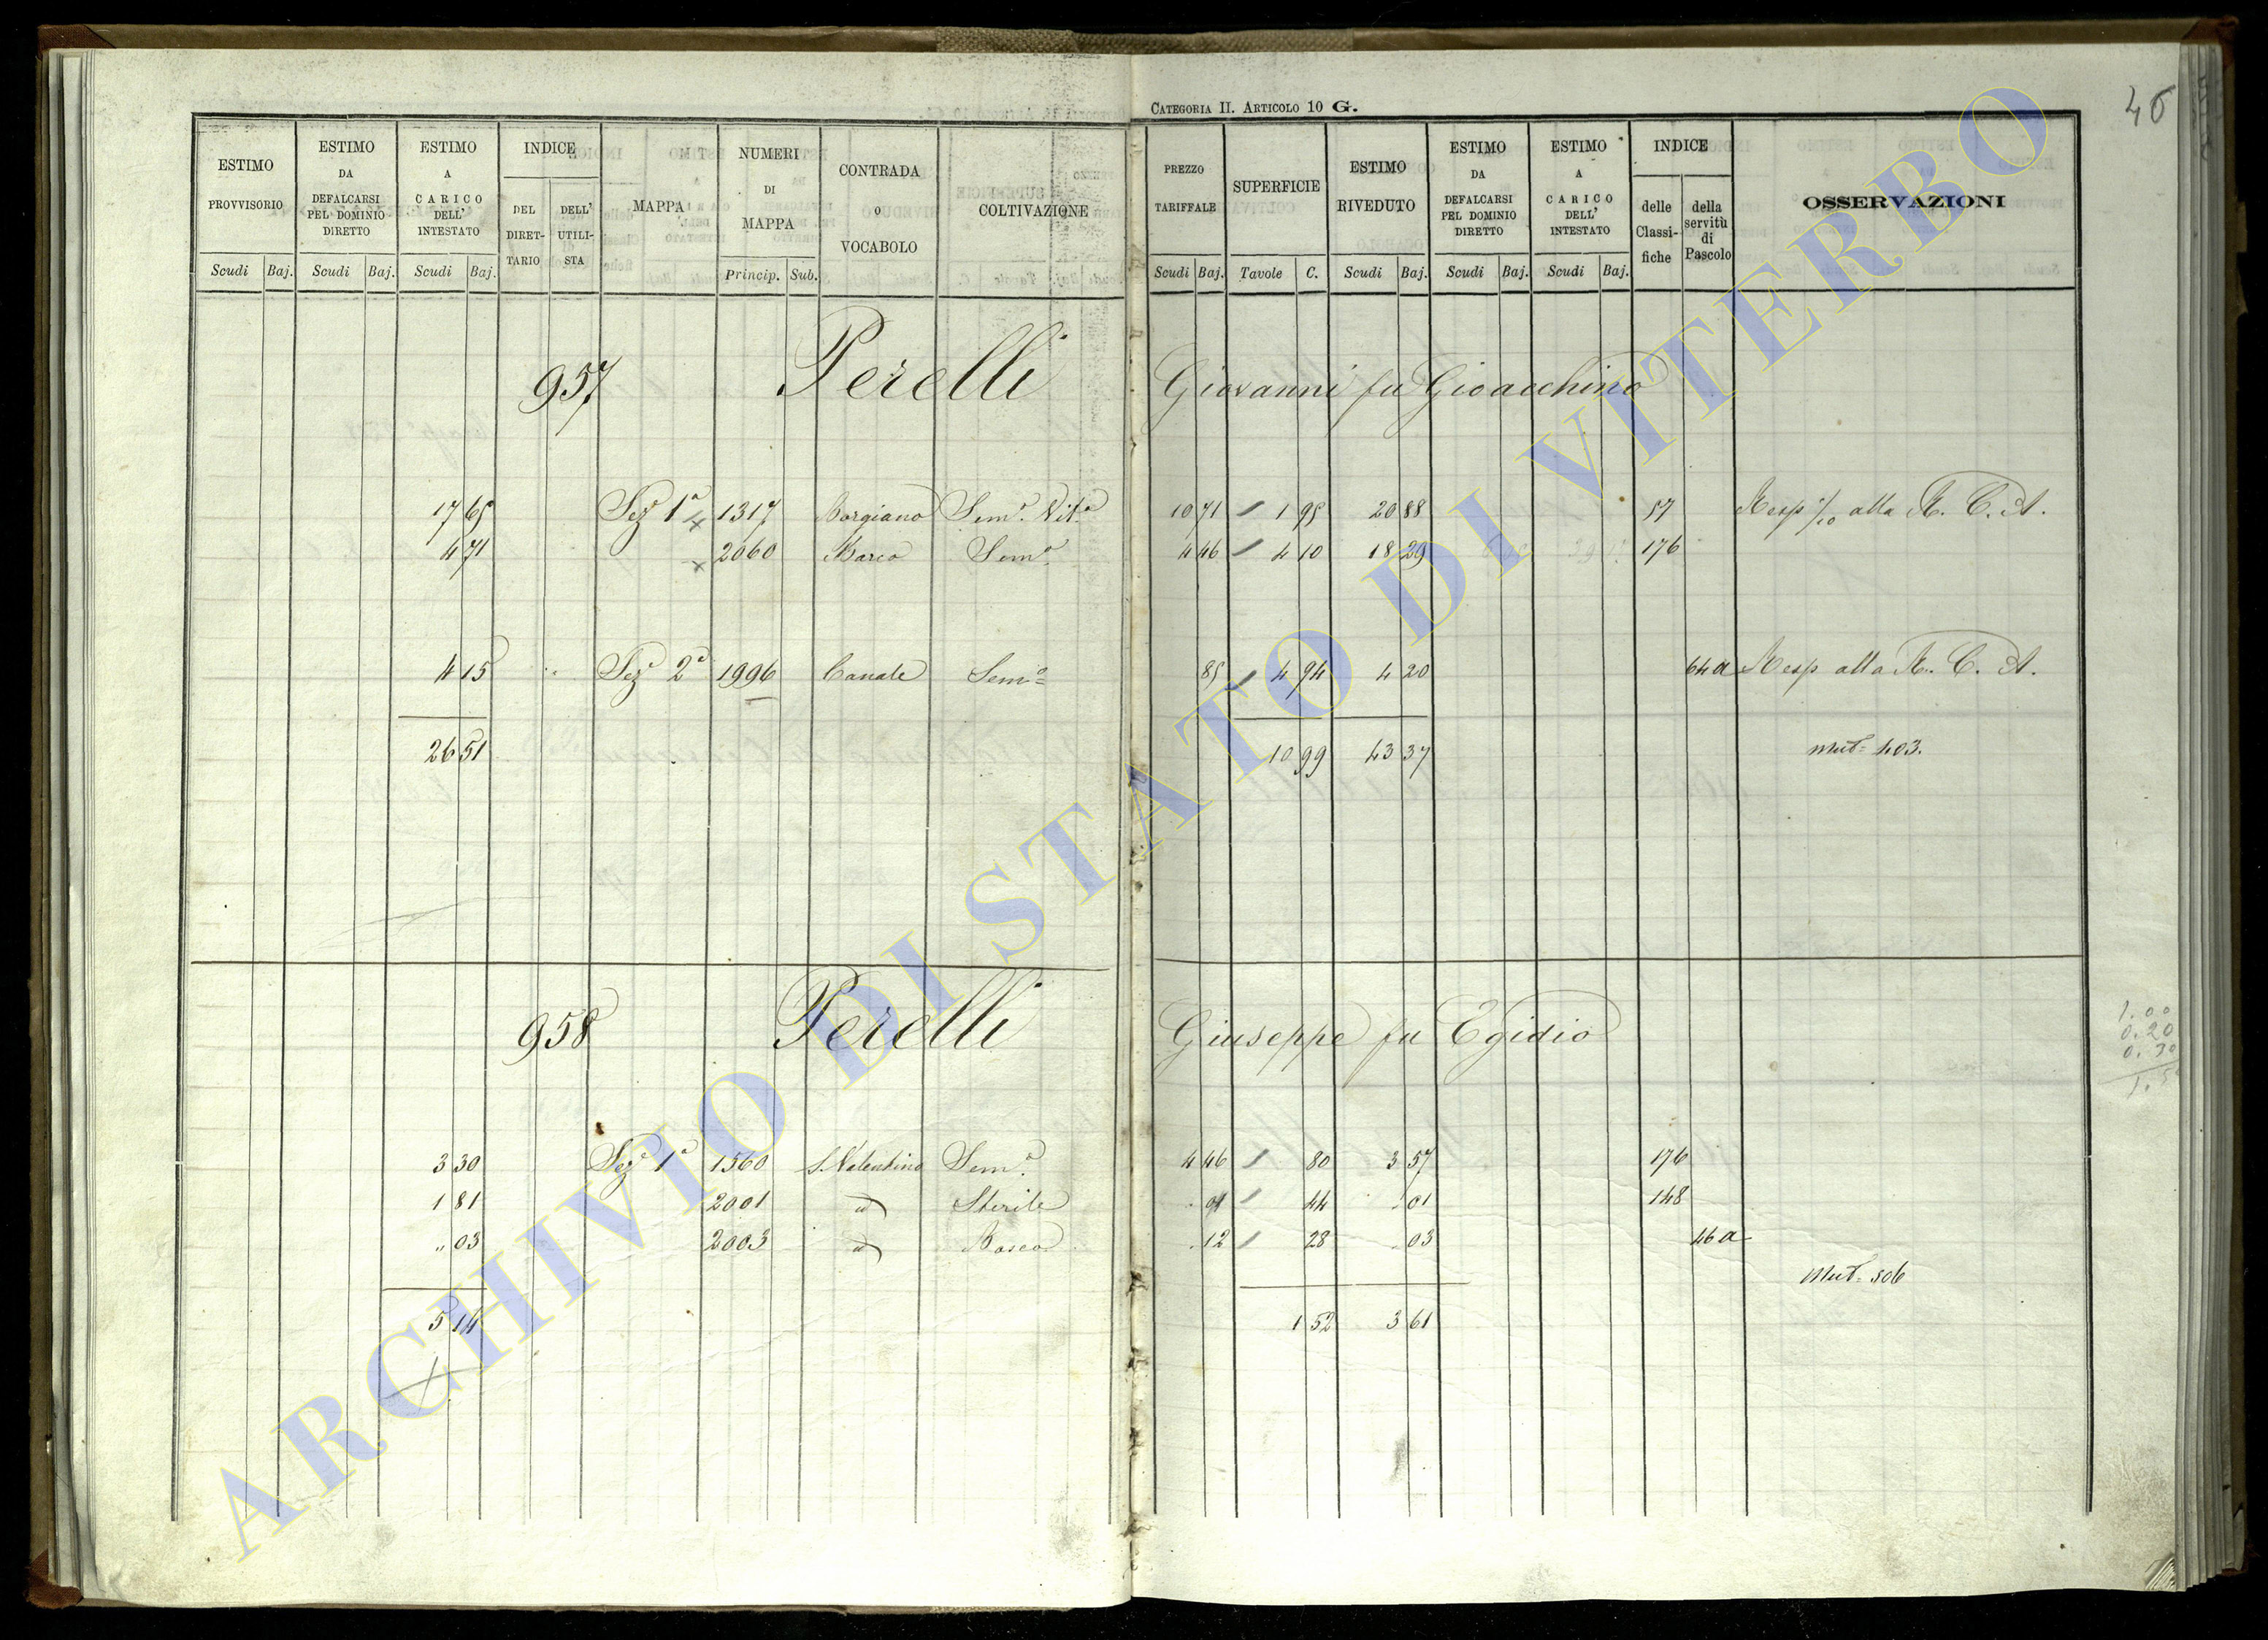 CATEGORIA II. ARTICOLO 10 G.
46
ESTIMO PROVVISORIO Scudi Baj.
ESTIMO DA DEFALCARSI PEL DOMINIO DIRETTO Scudi Baj.
ESTIMO A CARICO DELL' INTESTATO Scudi Baj.
INDICE DEL DIRET-TARIO DELL' UTILI-STA
MAPPA
NUMERI DI MAPPA Princip. Sub.
CONTRADA o VOCABOLO
COLTIVAZIONE
PREZZO TARIFFALE Scudi Baj.
SUPERFICIE Tavole C.
ESTIMO RIVEDUTO Scudi Baj.
ESTIMO DA DEFALCARSI PEL DOMINIO DIRETTO Scudi Baj.
ESTIMO A CARICO DELL' INTESTATO Scudi Baj.
INDICE delle Classi-fiche della servitù di Pascolo
OSSERVAZIONI
957 Perelli Giovanni fu Gioacchino
17 65 Sez.ª 1ª 1317 Borgiano Sem.º Vit.º 10 71 1 95 20 88 57 Resp alla R. C. A.
4 71 2060 Barco Sem.º 4 46 4 10 18 29 176
4 15 Sez.ª 2ª 1996 Canale Sem.º 85 4 94 4 20 64 a Resp alla R. C. A.
26 51 10 99 43 37 mut= 403.
958 Perelli Giuseppe fu Egidio
3 30 Sez.ª 1ª 1560 S. Valentino Sem.º 4 46 80 3 57 176
1 81 2001 id Sterile 01 44 01 148
" 03 2003 id Bosco 12 28 03 46 a
Mut= 506
5 14 1 52 3 61
1.00
0.20
0.30
ARCHIVIO DI STATO DI VITERBO